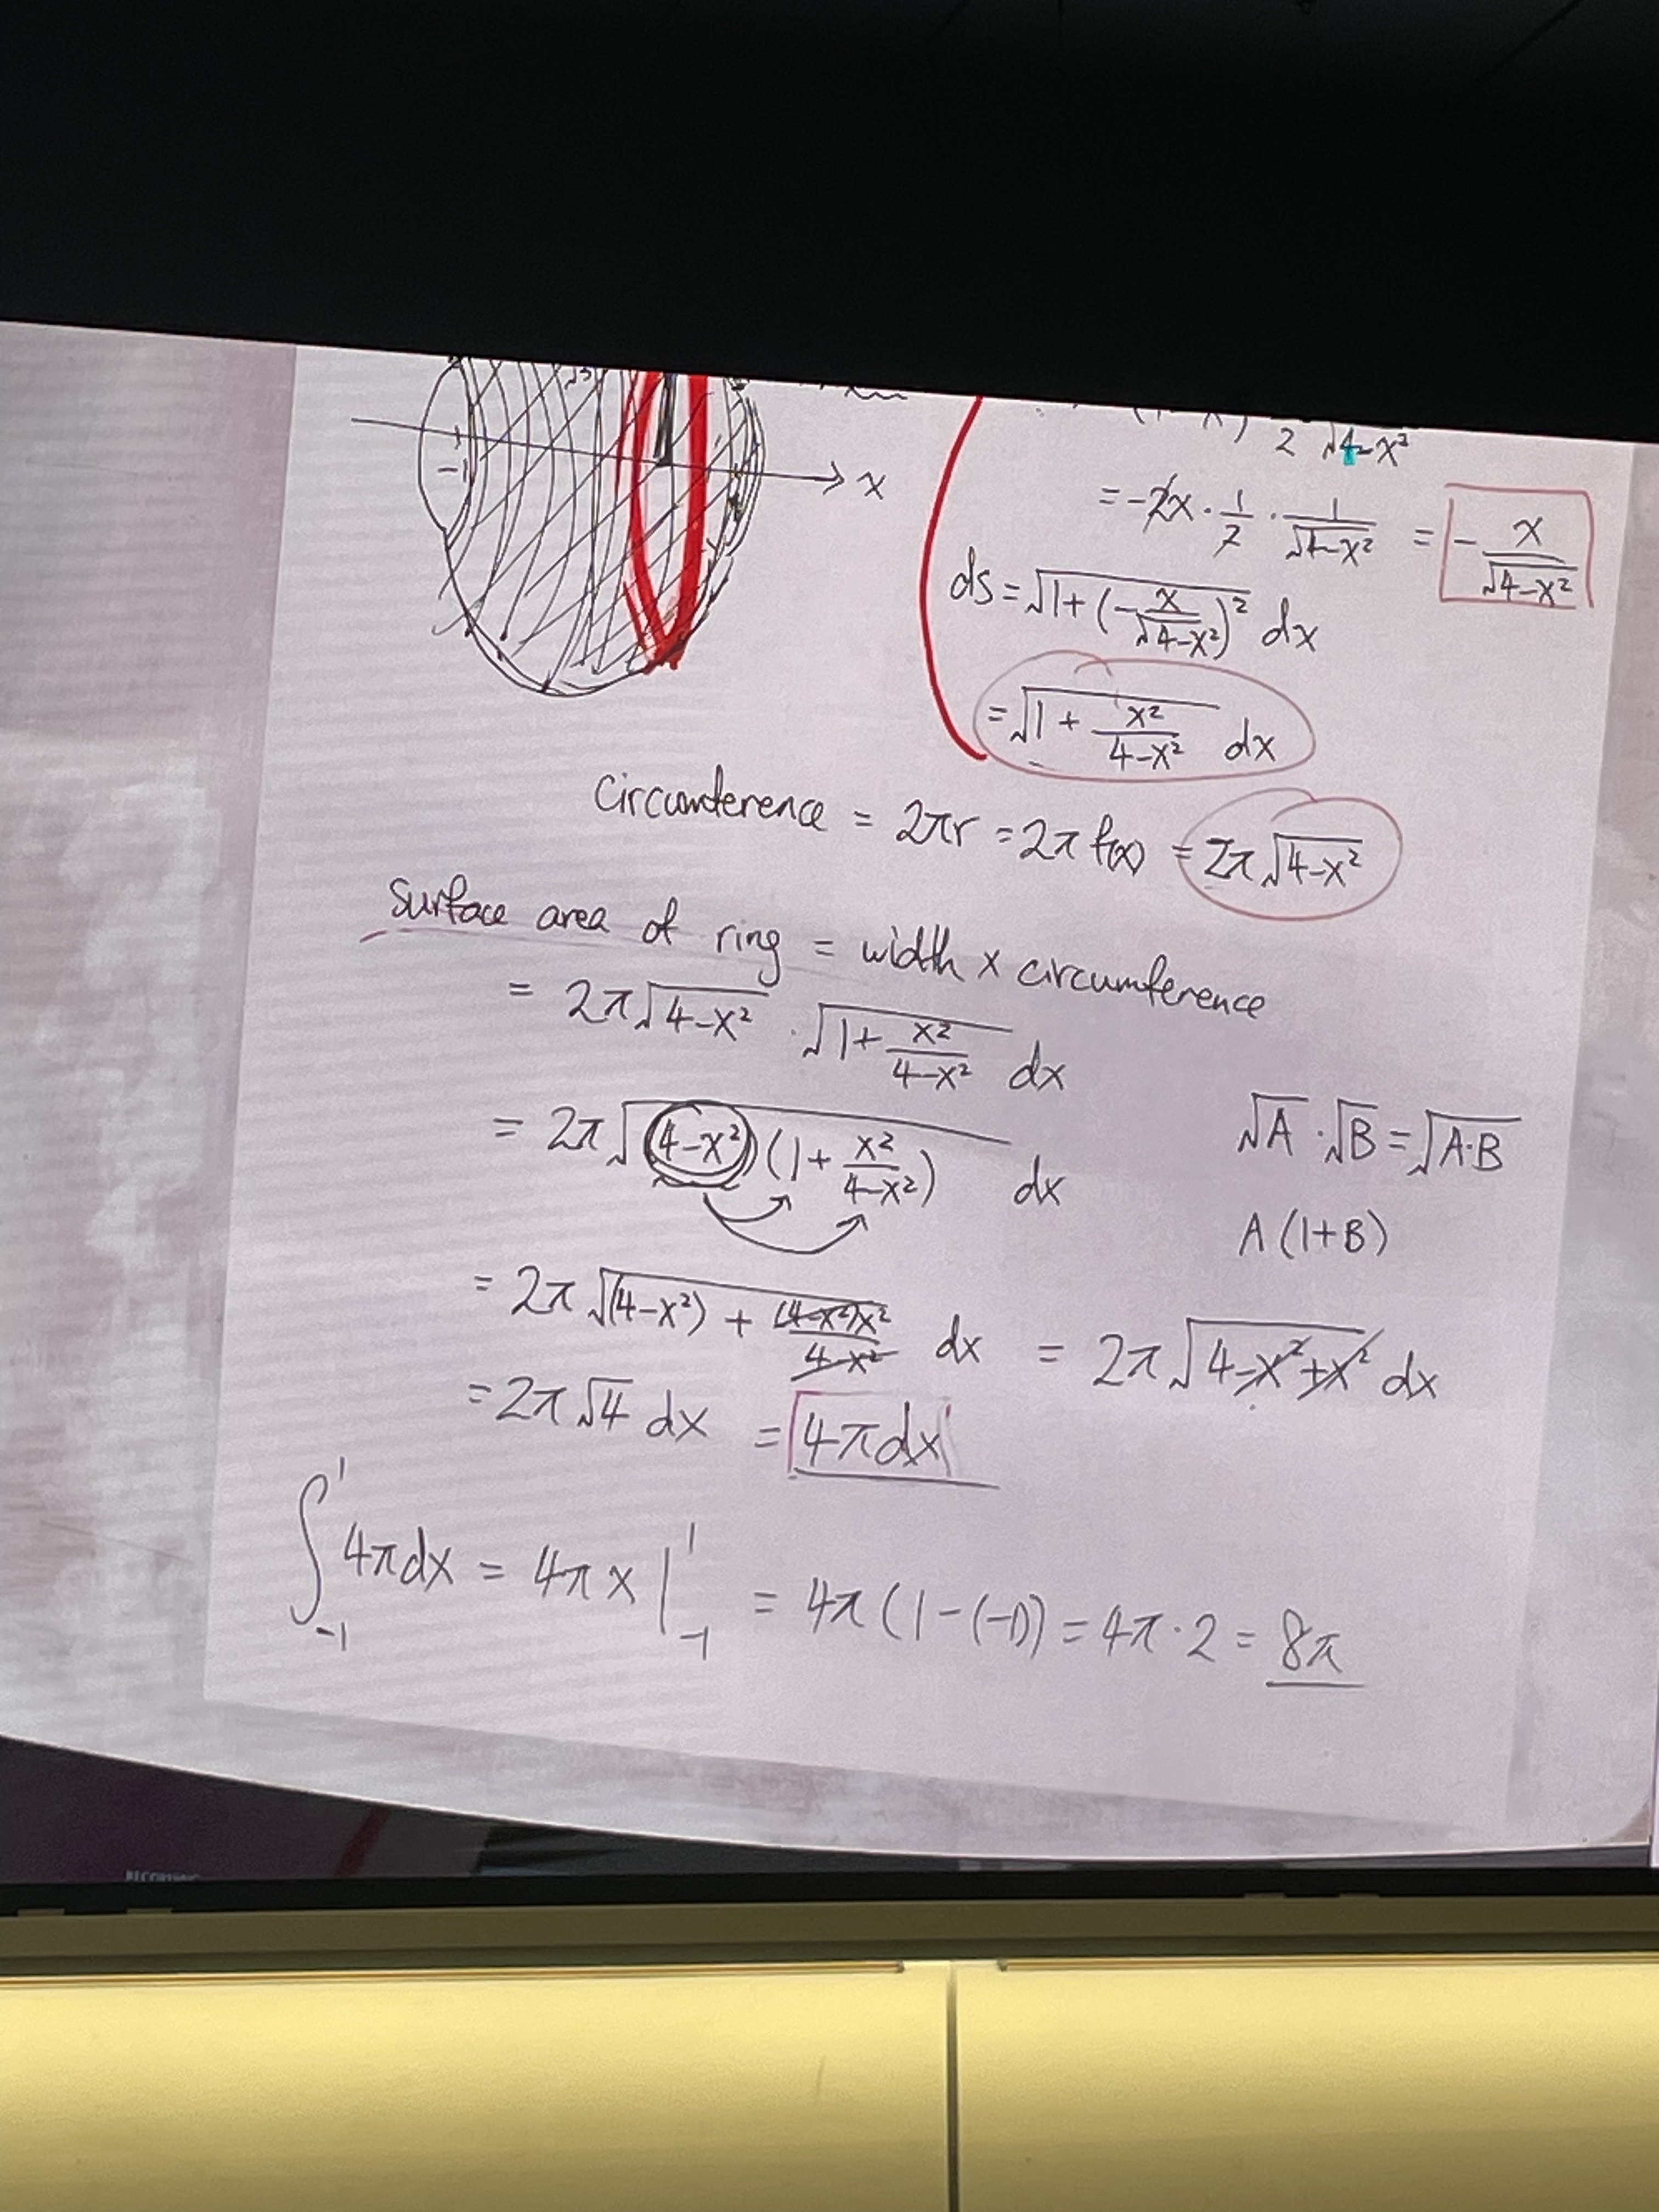 -1
x
2 √4-x²
= -2x · 1/2 · 1/√4-x² = - x/√4-x²
ds = √1+(-x/√4-x²)² dx
= √1 + x²/4-x² dx
Circumference = 2πr = 2π f(x) = 2π√4-x²
Surface area of ring = width x circumference
= 2π√4-x² · √1+ x²/4-x² dx
= 2π√(4-x²)(1+ x²/4-x²) dx
√A · √B = √A·B
A (1+B)
= 2π √(4-x²) + (4-x²)x²/4-x² dx = 2π √4-x²+x² dx
= 2π √4 dx = 4πdx
∫₋₁¹ 4πdx = 4πx |₋₁¹ = 4π(1-(-1)) = 4π·2 = 8π